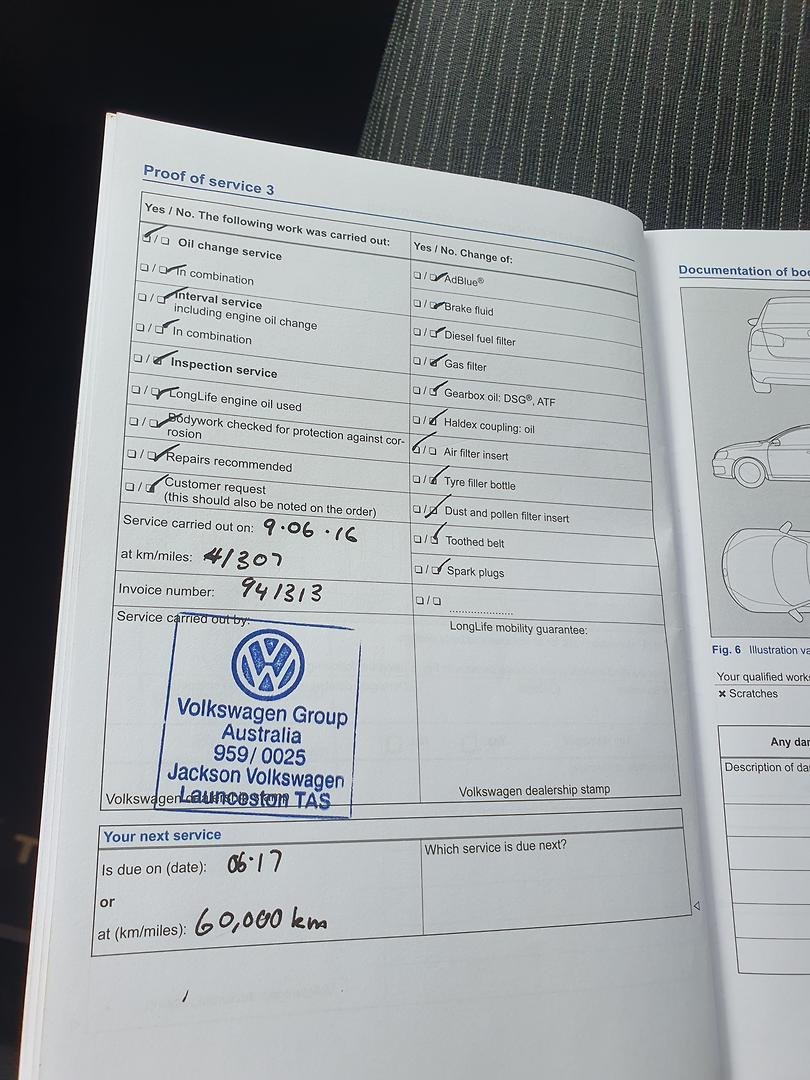 Proof of service 3
Yes / No. The following work was carried out:
☑ / ☐ Oil change service
☐ / ☑ In combination
☐ / ☑ Interval service
including engine oil change
☐ / ☑ In combination
☐ / ☑ Inspection service
☐ / ☑ LongLife engine oil used
☐ / ☑ Bodywork checked for protection against cor-
rosion
☐ / ☑ Repairs recommended
☐ / ☑ Customer request
(this should also be noted on the order)
Service carried out on: 9.06.16
at km/miles: 41307
Invoice number: 941313
Service carried out by:
Volkswagen Group
Australia
959/0025
Jackson Volkswagen
Launceston TAS
Yes / No. Change of:
☐ / ☑ AdBlue®
☐ / ☑ Brake fluid
☐ / ☑ Diesel fuel filter
☐ / ☑ Gas filter
☐ / ☑ Gearbox oil: DSG®, ATF
☐ / ☑ Haldex coupling: oil
☑ / ☐ Air filter insert
☐ / ☑ Tyre filler bottle
☐ / ☑ Dust and pollen filter insert
☐ / ☑ Toothed belt
☐ / ☑ Spark plugs
☐ / ☐ .....................
LongLife mobility guarantee:
Volkswagen dealership stamp
Your next service
Is due on (date): 06.17
or
at (km/miles): 60,000 km
Which service is due next?
Documentation of
Fig. 6 Illustration
Your qualified
✖ Scratches
Any
Description of